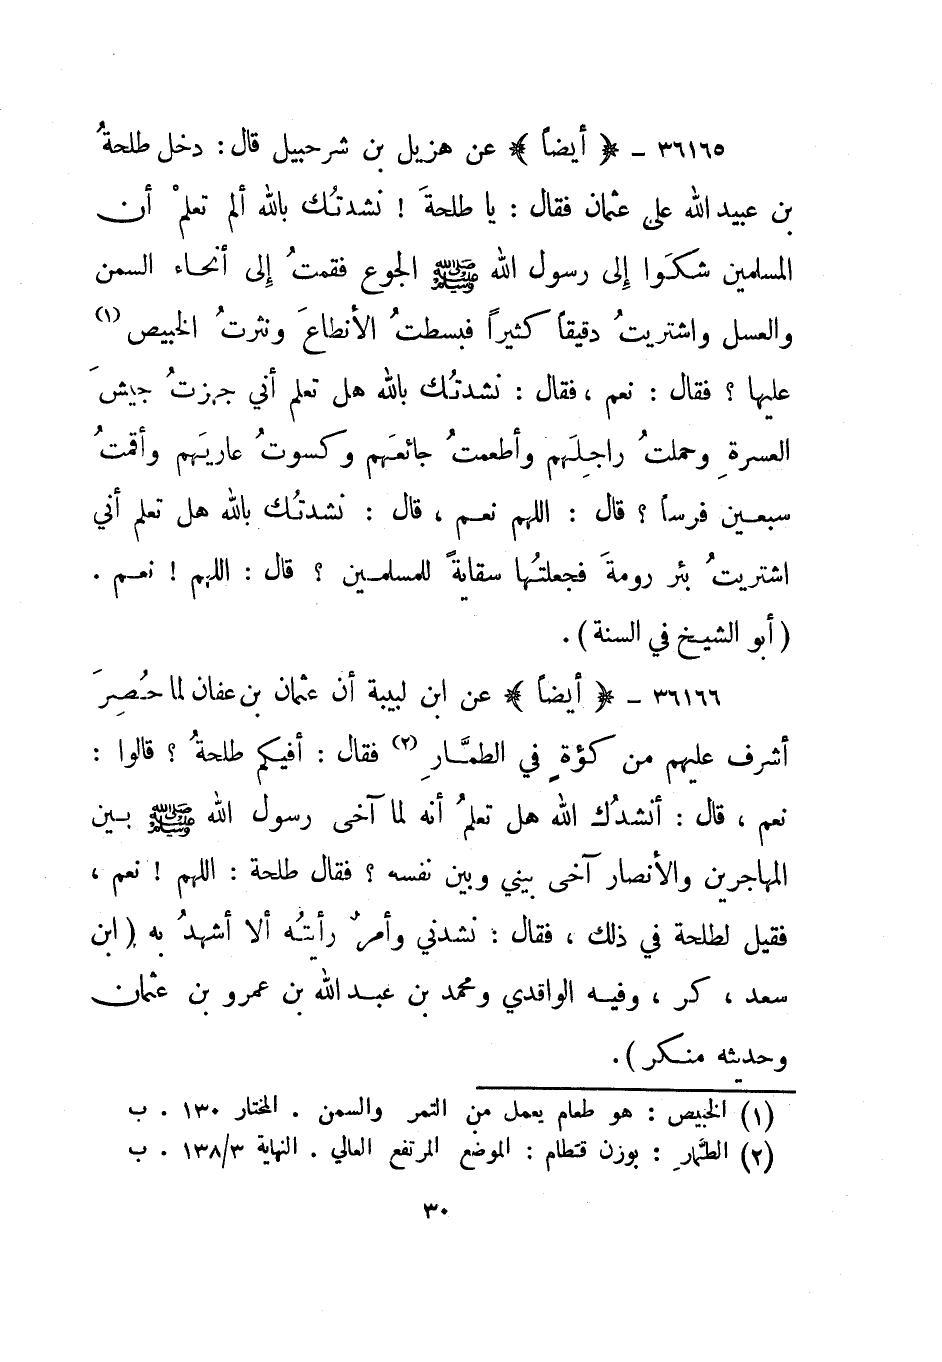 ٣٦١٦٥ ـ ﴿ أيضاً ﴾ عن هزيل بن شرحبيل قال : دخل طلحةُ
بن عبيد الله على عثمان فقال : يا طلحةَ ! نشدتُك بالله ألم تعلمْ أن
المسلمين شكَوا إلى رسول الله ﷺ الجوع فقمتُ إلى أنحاء السمن
والعسل واشتريتُ دقيقاً كثيراً فبسطتُ الأنطاعَ ونثرتُ الخبيص (١)
عليها ؟ فقال : نعم ، فقال : نشدتُك بالله هل تعلم أني جهزتُ جيشَ
العسرةِ وحملتُ راجِلَهم وأطعمتُ جائعَهم وكسوتُ عاريَهم وأقمتُ
سبعين فرساً ؟ قال : اللهم نعم ، قال : نشدتُك بالله هل تعلم أني
اشتريتُ بئر رومةَ فجعلتُها سقايةً للمسلمين ؟ قال : اللهم ! نعم .
( أبو الشيخ في السنة ) .
٣٦١٦٦ ـ ﴿ أيضاً ﴾ عن ابن لبيبة أن عثمان بن عفان لما حُصِرَ
أشرف عليهم من كؤةٍ في الطمَّارِ (٢) فقال : أفيكم طلحةُ ؟ قالوا :
نعم ، قال : أنشدُك الله هل تعلمُ أنه لما آخى رسول الله ﷺ بين
المهاجرين والأنصار آخى بيني وبين نفسه ؟ فقال طلحة : اللهم ! نعم ،
فقيل لطلحة في ذلك ، فقال : نشدني وأمرٌ رأيتُه ألا أشهدُ به ( ابن
سعد ، كر ، وفيه الواقدي ومحمد بن عبد الله بن عمرو بن عثمان
وحديثه منكر ) .
(١) الخبيص : هو طعام يعمل من التمر والسمن . المختار ١٣٠ . ب
(٢) الطَّمارِ : بوزن قَطام : الموضع المرتفع العالي . النهاية ١٣٨/٣ . ب
٣٠